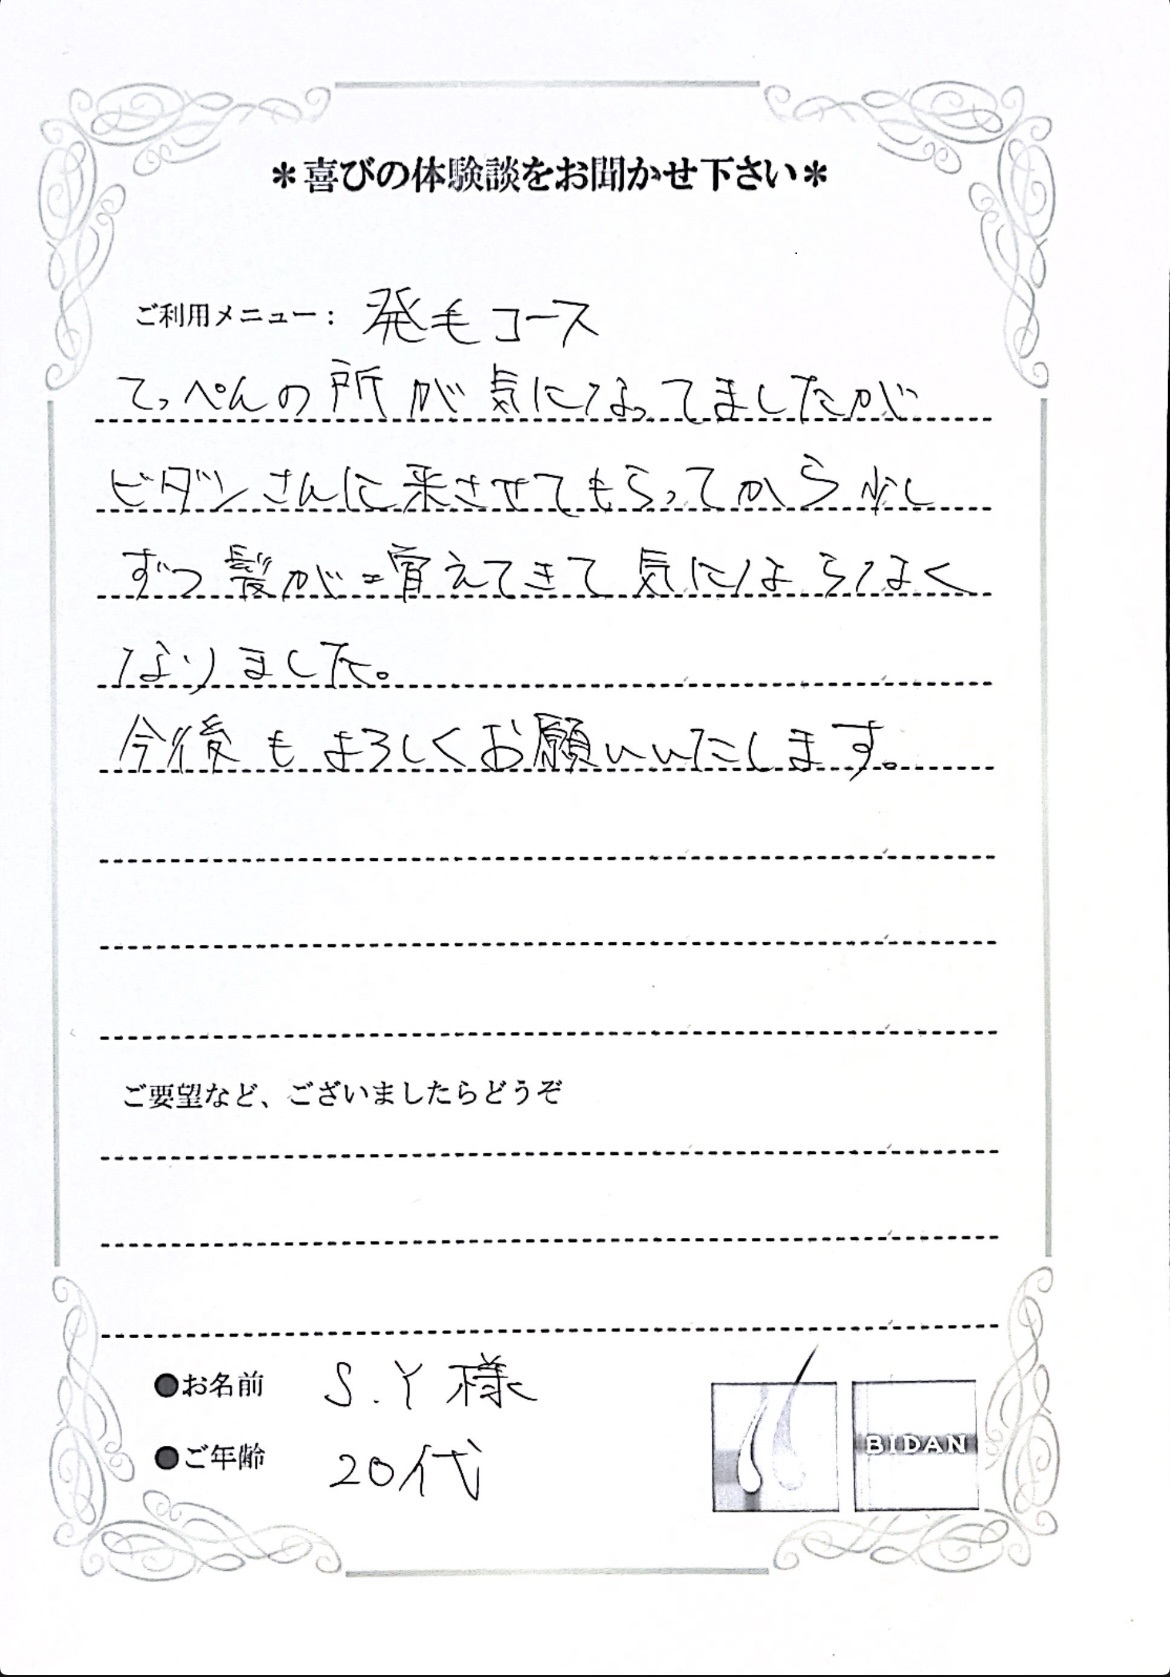 ＊喜びの体験談をお聞かせ下さい＊
ご利用メニュー： 発毛コース
てっぺんの所が気になってましたが
ビダンさんに来させてもらってから少し
ずつ髪が増えてきて気にはならなく
なりました。
今後もよろしくお願いいたします。
ご要望など、ございましたらどうぞ
●お名前 S.Y様
●ご年齢 20代
BIDAN